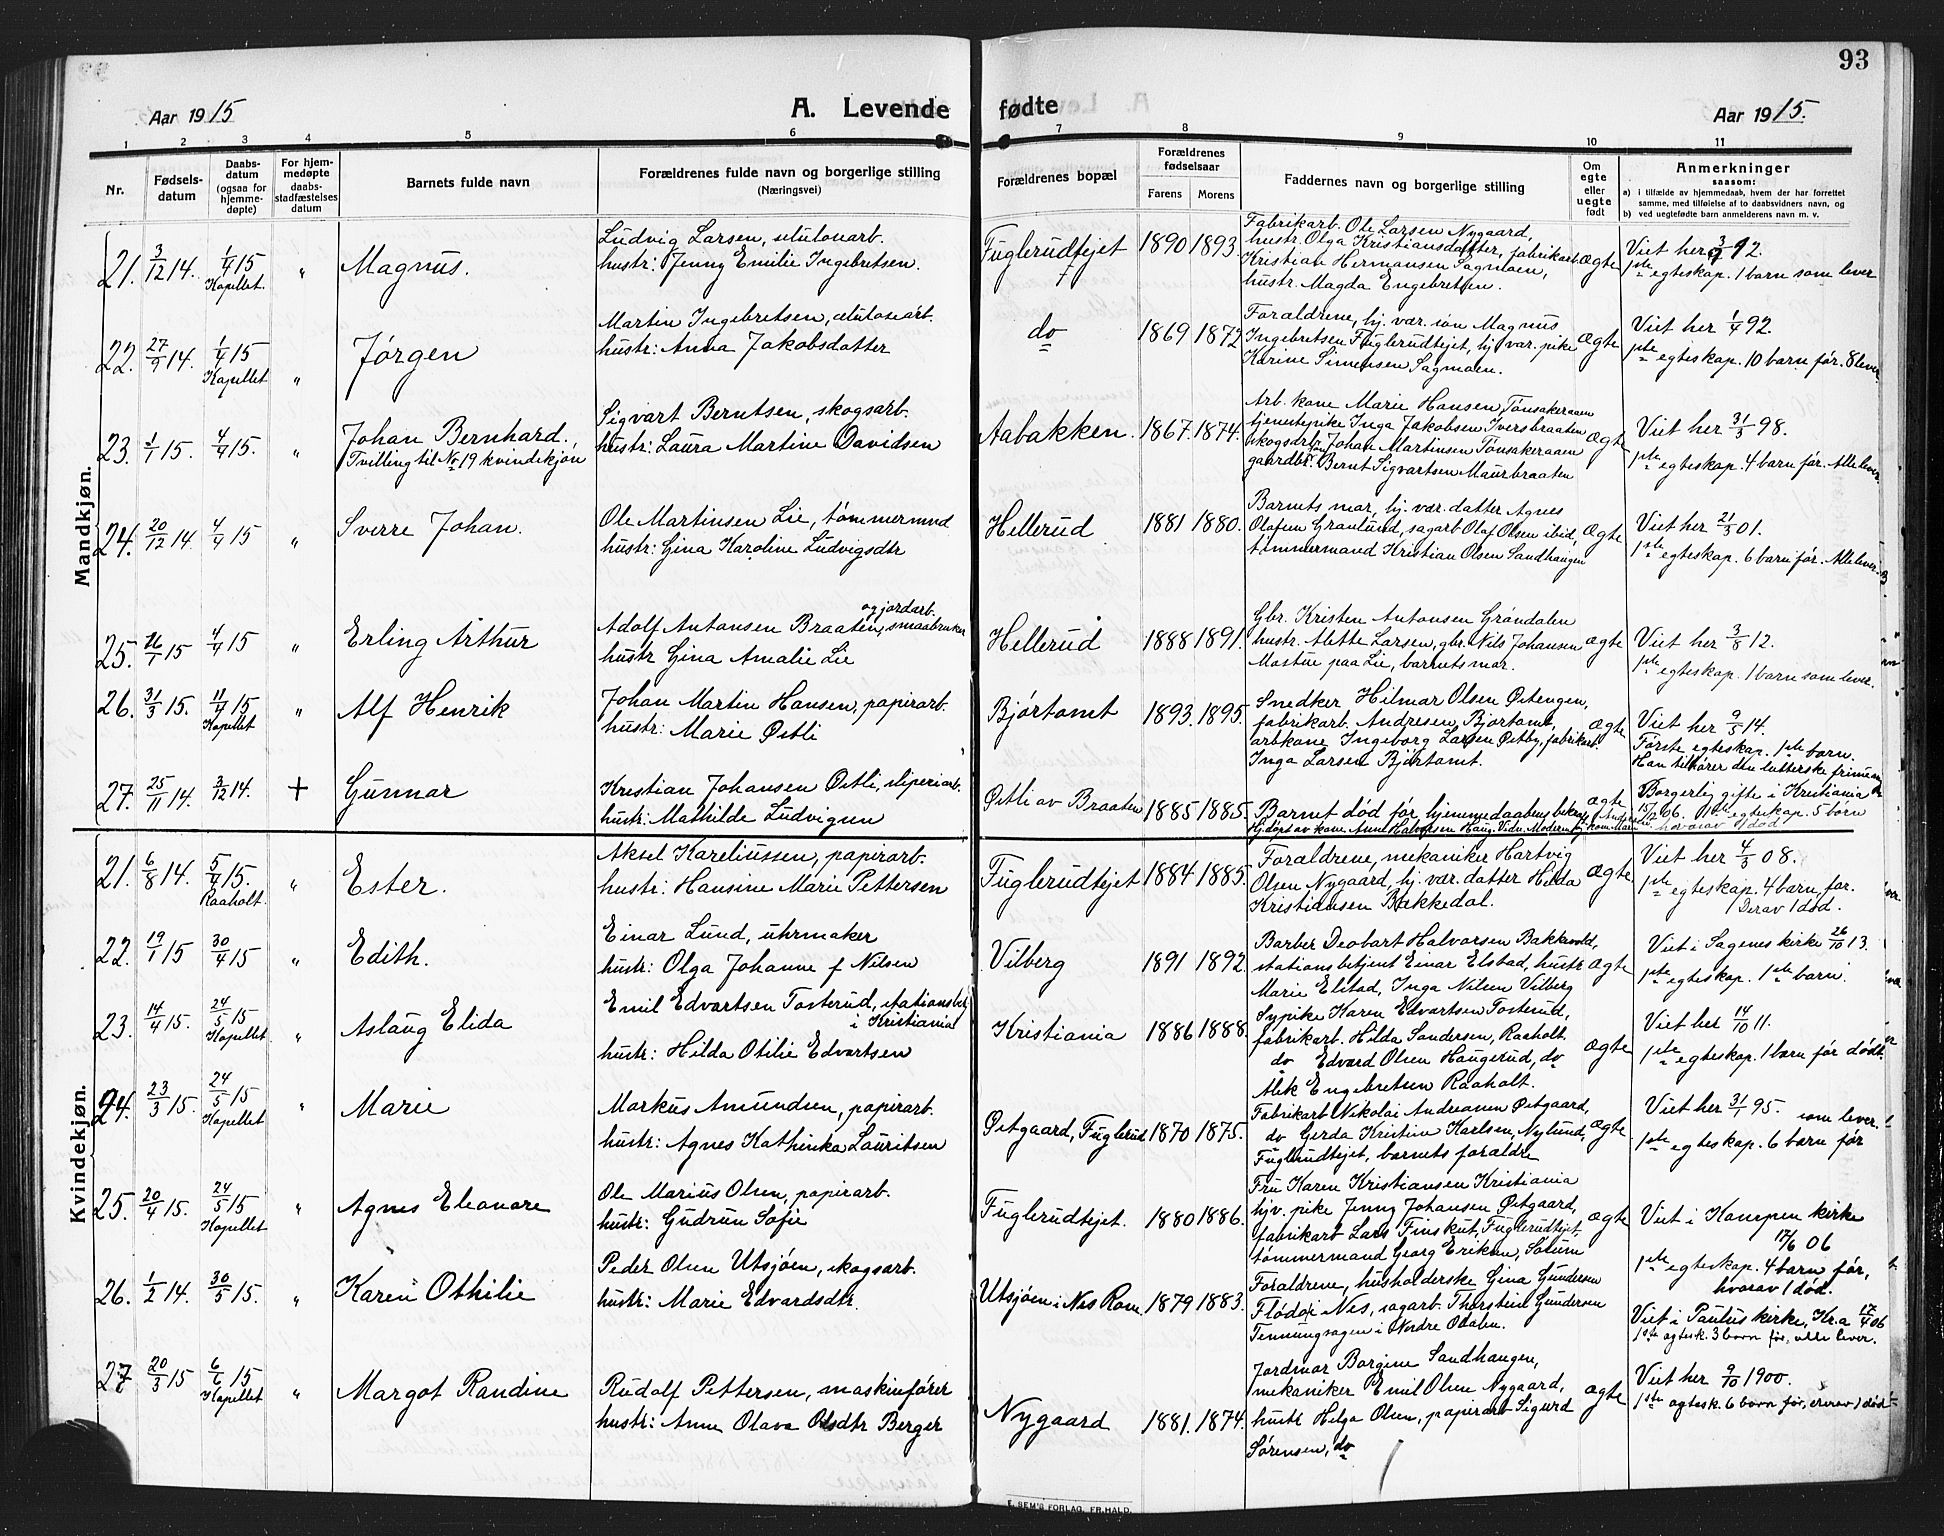 93
Aar 1915
A. Levende fødte
Aar 1915.
1 2 3 4 5 6 7 8 9 10 11
Nr.
Fødsels-
datum
Daabs-
datum
(ogsaa for
hjemme-
døpte)
For hjem-
medøpte
daabs-
stadfæstelses
datum
Barnets fulde navn
Forældrenes fulde navn og borgerlige stilling
(Næringsvei)
Forældrenes bopæl
Forældrenes
fødselsaar
Farens Morens
Faddernes navn og borgerlige stilling
Om
egte
eller
uegte
født
Anmerkninger
saasom:
a) i tilfælde av hjemmedaab, hvem der har forrettet
samme, med tilføielse af to daabsvidners navn, og
b) ved uegtefødte barn anmelderens navn m. v.
Mandkjøn.
21. 3/12 14. 1/4 15 Kapellet " Magnus.
Ludvig Larsen, celulosearb.
hustr: Jenny Emilie Ingebretsen.
Fuglerudfejet 1890 1893.
Fabrikarb. Ole Larsen Nygaard,
hustr. Olga Kristiansdatter, fabrikarb
Kristian Hermansen Sagmoen,
hustr. Magda Engebretsen.
ægte
Viet her 12.
1ste egteskap. 1 barn som lever
22. 27/9 14. 1/4 15 Kapellet " Jørgen
Martin Ingebretsen, celulosearb.
hustr: Anna Jakobsdatter
do 1869 1872
Forældrene, hj. vær. søn Magnus
Ingebretsen Fuglerudfejet, hj. vær. pike
Karine Simensen Sagmoen.
ægte
Viet her 1/4 92.
1ste egteskap. 10 barn før. 8 lever.
23. 1/1 15. 4/4 15. " Johan Bernhard.,
Tvilling til No 19 kvindekjøn
Sigvart Berntsen, skogsarb.
hustr: Laura Martine Davidsen
Aabakken. 1867. 1874.
Arb. kone Marie Hansen, Tønsakeraaen
tjenestepike Inga Jakobsen Iversbraaten
skogsarb. Johan Martinsen Tönsakeraaen
gaardbr. Bernt Sigvartsen Maurbraaten
ægte
Viet her 31/3 98.
1ste egteskap. 4 barn før. Alle lever.
24. 20/12 14. 4/4 15 " Sverre Johan.
Ole Martinsen Lie, tømmermnd
hustr: Gina Karoline Ludvigsdtr
Hellerud 1881 1880.
Barnets mor, hj. vær. datter Agnes
Olafsen Granlund, sagarb. Olaf Olsen ibid,
tømmermand Kristian Olsen Sandhaugen
ægte
Viet her 21/3 01.
1ste egteskap. 6 barn før. Alle lever.
25. 26/1 15 4/4 15 " Erling Arthur
og jordarb.
Adolf Antonsen Braaten, smaabruker
hustr Gina Amalie Lie
Hellerud 1888 1891.
Gbr. Kristen Antonsen Grøndalen
hustr. Alette Larsen, gbr. Nils Johansen
Mastue paa Lie, barnets mor.
ægte
Viet her 3/8 12.
1ste egteskap. 1 barn som lever.
26. 31/3 15. 11/4 15 Kapellet " Alf Henrik
Johan Martin Hansen, papirarb.
hustr: Marie Østli
Bjørtomt 1893. 1895.
Snedker Hilmar Olsen Østengen,
fabrikarb. Andresen, Bjørtomt,
arbkone Ingeborg Larsen Østby, fabrikarb.
Inga Larsen Bjørtomt.
ægte
Viet her 9/5 14.
Første egteskap. 1ste barn.
Han tilhører den lutterske frimenig
27. 25/11 14. 3/12 14. + Gunnar
Kristian Johansen Østli, sliperiarb.
hustr: Mathilde Ludvigsen
Østli av Braaten 1885 1885.
Barnet død før hjemmedaabens bekr.
Hj.døpt av kone Anne Halvorsen Haug.
ægte
Borgerlig gifte i Kristiania
15/12 06. 1ste egteskap. 5 børn
hvorav 1 død
Kvindekjøn.
21. 6/8 14. 5/4 15. Raaholt. " Ester.
Aksel Kareliussen, papirarb.
hustr: Hansine Marie Pettersen
Fuglerudfejet 1884 1885.
Forældrene, mekaniker Hartvig
Olsen Nygaard, hj. vær. datter Hilda
Kristiansen Bakkedal.
ægte
Viet her 4/3 08.
1ste egteskap. 4 barn, før.
Derav 1 død.
22. 19/1 15 30/4 15 " Edith.
Einar Lund, uhrmaker
hustr: Olga Johanne f Nilsen
Vilberg 1891 1892.
Barber Deobart Halvorsen Bakkevold,
stationsbetjent Einar Elstad, hustr
Marie Elstad, Inga Nilsen Vilberg
ægte
Viet i Sagenes kirke 26/10 13.
1ste egteskap. 1ste barn.
23. 14/4 15. 24/5 15 Kapellet " Aslaug Elida
Emil Edvartsen Tosterud, stationsbetj
i Kristiania
hustr: Hilda Otilie Edvartsen
Kristiania 1886 1888.
Sypike Karen Edvartsen Tosterud,
fabrikarb. Hilda Sandersen, Raaholt
do Edvard Olsen Haugerud, do
Alek Engebretsen Raaholt.
ægte
Viet her 14/10 11.
1ste egteskap. 1 barn før dødt.
24. 23/3 15. 24/5 15 Kapellet " Marie
Markus Amundsen, papirarb.
hustr: Agnes Kathinka Lauritsen
Østgaard, Fuglerud 1870 1875.
Fabrikarb Nikolai Andreasen Østgaard,
do Gerda Kristine Karlsen, Nylund,
Fuglerudfejet, barnets forældre
ægte
Viet her 31/1 95. som lever.
1ste egteskap. 6 barn før
25. 20/4 15. 24/5 15 Kapellet " Agnes Eleonore
Ole Marius Olsen, papirarb.
hustr: Gudrun Sofie
Fuglerudfejet. 1880 1886.
Fru Karen Kristiansen Kristiania
hjv. pike Jenny Johansen Østgaard,
fabrikarb Lars Finskut, Fuglerudfejet,
tømmermand Georg Eriksen, Sotum
ægte
Viet i Kampen kirke
17/6 06
1ste egteskap. 4 barn før,
hvorav 1 død.
26. 1/2 14. 30/5 15. " Karen Othilie
Peder Olsen Utsjøen, skogsarb.
hustr: Marie Edvardsdtr.
Utsjøen i Nes Rom. 1879 1883.
Forældrene, husholderske Gina Gundersen
Fløden i Nes, sagarb. Thorstein Gundersen
Tennungsagen i Nordre Odalen.
Viet i Paulus kirke, Kr.a 17/4 06
1ste egtesk. 3 barn før, alle lever.
27 20/3 15 6/6 15 Kapellet " Margot Randine
Rudolf Pettersen, maskinfører
hustr: Anne Olava Olsdtr Berger
Nygaard 1881. 1874.
Jordmor Borgine Sandhaugen,
mekaniker Emil Olsen Nygaard,
hustr Helga Olsen, papirarb Sigurd
Sørensen, do
ægte
Viet her 9/10 1900.
1ste egtesk. 6 barn før, derav 1 død
E. SEM'S FORLAG, FR.HALD.